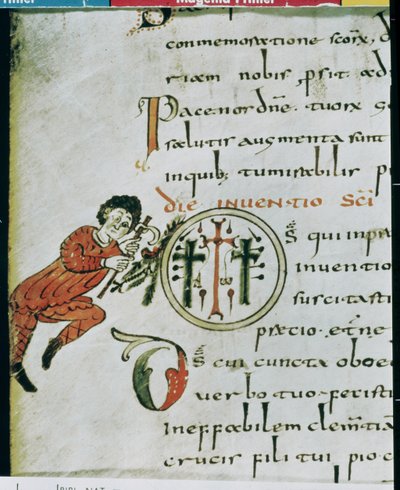 conmemoratione scorꝝ, d
riam nobis psit. ad
Pace nor dnē. tuorꝝ
salutis augmenta sunt
inquib; tu mirabilis p
die inventio sci
ds qui inpre
inventio
suscitasti
praecio. et
ds cui cuncta oboe
verbo tuo
ineffabilem
crucis fili tui pio c